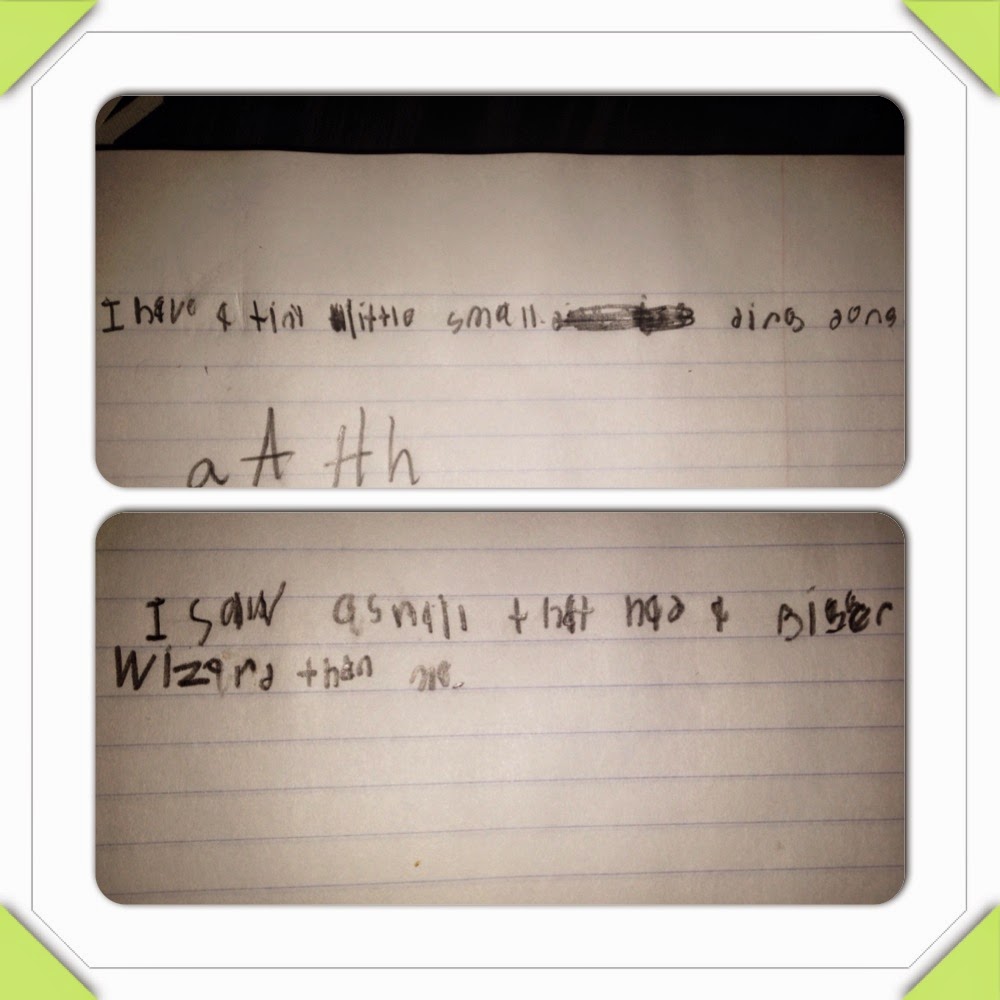 I have a tiny little small ding dong
a A H h
I saw a small that had a Bigger
Wizard than me.